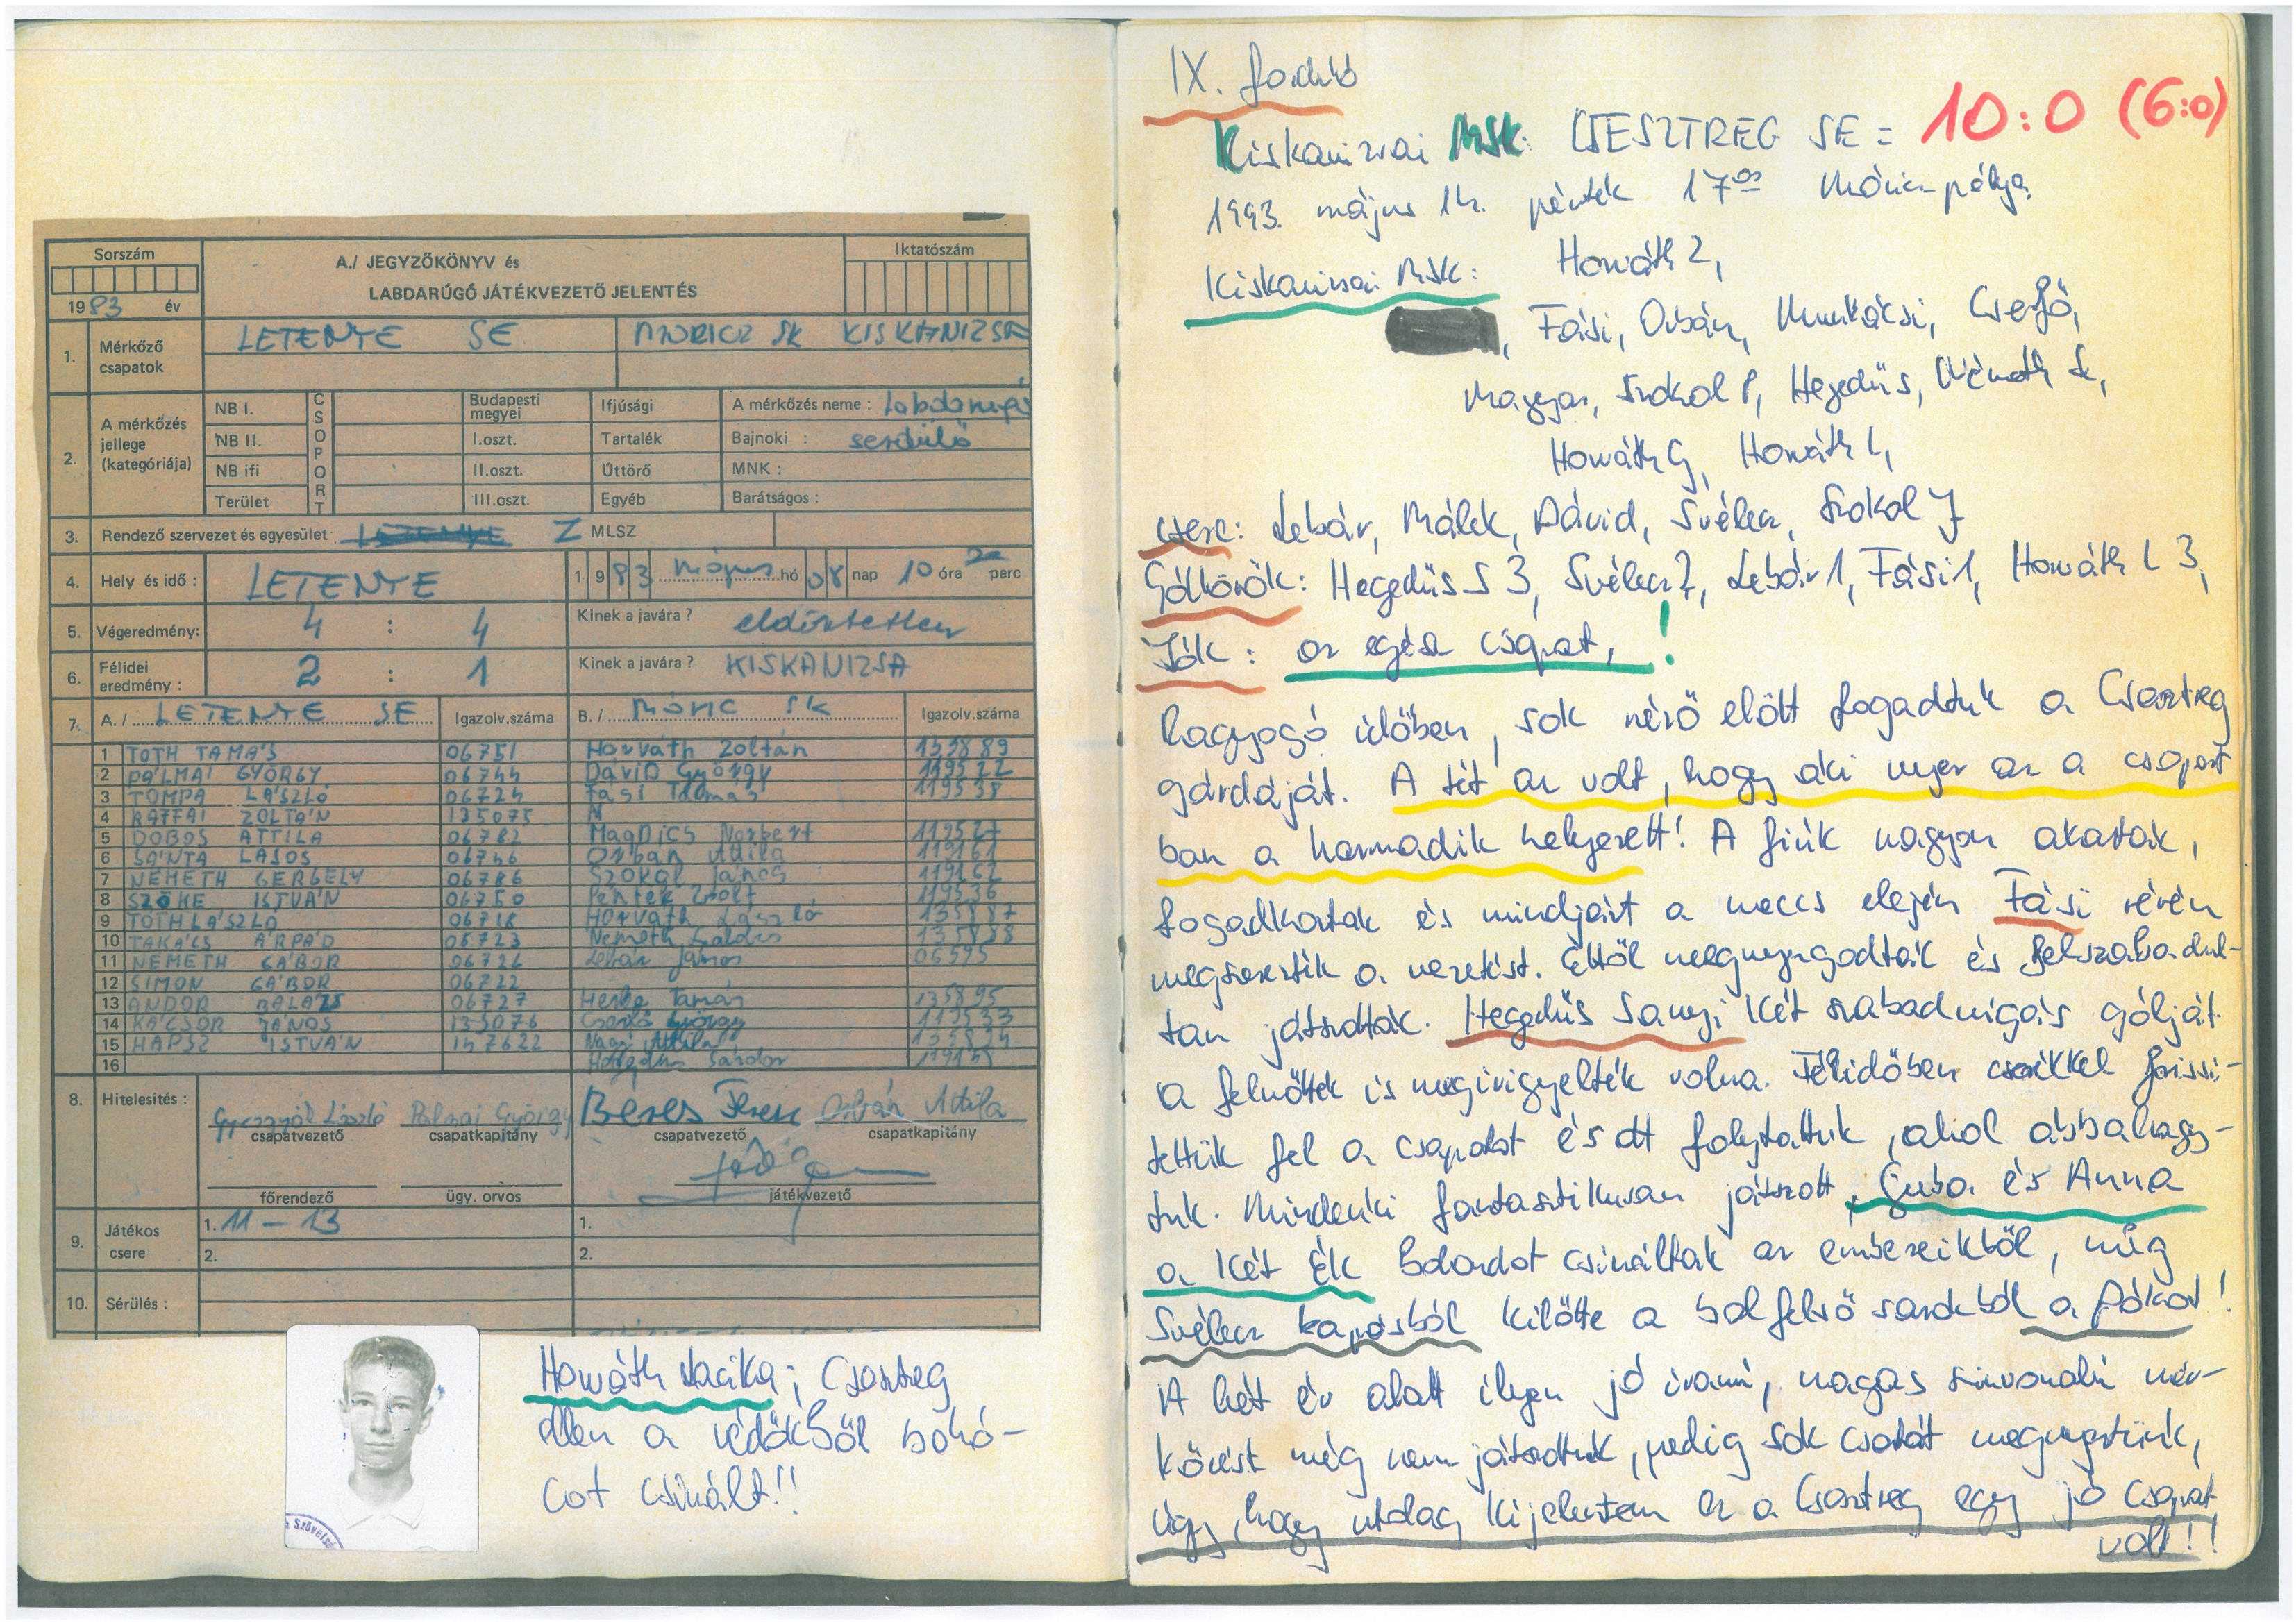 Sorszám
1983 év
A./ JEGYZŐKÖNYV és
LABDARÚGÓ JÁTÉKVEZETŐ JELENTÉS
Iktatószám
1. Mérkőző csapatok
LETENYE SE
MORICZ SK KISKANIZSA
2. A mérkőzés jellege (kategóriája)
NB I.
NB II.
NB ifi
Terület
CSOPORT
Budapesti megyei
I.oszt.
II.oszt.
III.oszt.
Ifjúsági
Tartalék
Úttörő
Egyéb
A mérkőzés neme : Labdarugó
Bajnoki : serdülő
MNK :
Barátságos :
3. Rendező szervezet és egyesület Z MLSZ
4. Hely és idő : LETENYE 1983 május hó 08 nap 10 óra perc
5. Végeredmény: 4 : 4 Kinek a javára ? eldöntetlen
6. Félidei eredmény : 2 : 1 Kinek a javára ? KISKANIZSA
7. A./ LETENYE SE Igazolv.száma B./ Móric SK Igazolv.száma
1 TOTH TAMÁS 06751 Horváth Zoltán 135889
2 PÁLMAI GYÖRGY 06744 Dávid György 119522
3 TOMPA LÁSZLÓ 06724 Fási Tamás 119538
4 RAFFAI ZOLTÁN 135075
5 DOBOS ATTILA 06782 Magnics Norbert 119527
6 SÁNTA LAJOS 06746 Orbán Attila 119161
7 NÉMETH GERGELY 06786 Szokol János 119162
8 SZŐKE ISTVÁN 06750 Péntek Zsolt 119536
9 TÓTH LÁSZLÓ 06718 Horváth László 135887
10 TAKÁCS ÁRPÁD 06723 Németh 135838
11 NÉMETH GÁBOR 06726 Lebár János 06595
12 SIMON GÁBOR 06722
13 ANDOR BALÁZS 06727 Tamás 135895
14 KÁCSOR JÁNOS 135076 Cserfő György 119533
15 HAPSZ ISTVÁN 147622 Nagy Attila 135834
16 Hegedüs Sándor 119148
8. Hitelesités :
László Pálmai György Beres Ferenc Orbán Attila
csapatvezető csapatkapitány csapatvezető csapatkapitány
főrendező ügy. orvos játékvezető
9. Játékos csere
1. 11 – 13 1.
2. 2.
10. Sérülés :
Horváth Lacika; Csesztreg
ellen a védőkből bohó-
cot csinált!!
IX. forduló
Kiskanizsai MSK: CSESZTREG SE = 10:0 (6:0)
1993. május 14. péntek 17⁰⁰ Móricz-pálya
Kiskanizsai MSK: Horváth Z,
Fási, Orbán, Munkácsi, Cserfő,
Magyar, Szokol P, Hegedüs, Németh Sz,
Horváth G, Horváth L,
csere: Lebár, Málek, Dávid, Svélecz, Szokol J
Góllövők: Hegedüs S 3, Svélecz 2, Lebár 1, Fási 1, Horváth L 3,
Jók: az egész csapat, !
Ragyogó időben, sok néző előtt fogadtuk a Csesztreg
gárdáját. A tét az volt, hogy aki nyer az a csoport
ban a harmadik helyezett! A fiúk nagyon akartak,
fogadkoztak és mindjárt a meccs elején Fási révén
megszerezték a vezetést. Ettől megnyugodtak és felszabadul-
tan játszottak. Hegedüs Sanyi két szabadrúgás gólját
a felnőttek is megirigyelték volna. Félidőben cserékkel frissí-
tettük fel a csapatot és ott folytattuk, ahol abbahagy-
tuk. Mindenki fantasztikusan játszott, Guba és Anna
a két ék bolondot csináltak az embereikből, míg
Svélecz kapásból kilőtte a bal felső sarokból a pókot!
A hét év alatt ilyen jó iramú, magas szinvonalú mér-
kőzést még nem játszottuk, pedig sok csatát megnyertünk,
úgy, hogy utolag kijelentem ez a Csesztreg egy jó csapat
volt!!